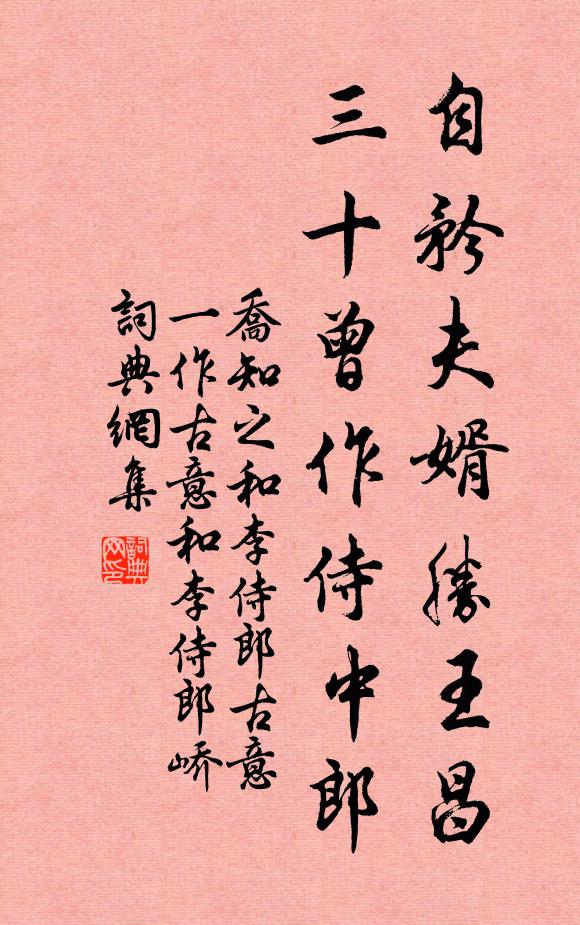 自矜夫婿勝王昌
三十曾作侍中郎
喬知之和李侍郎古意
一作古意和李侍郎嶠
詞典網集
詞典網印